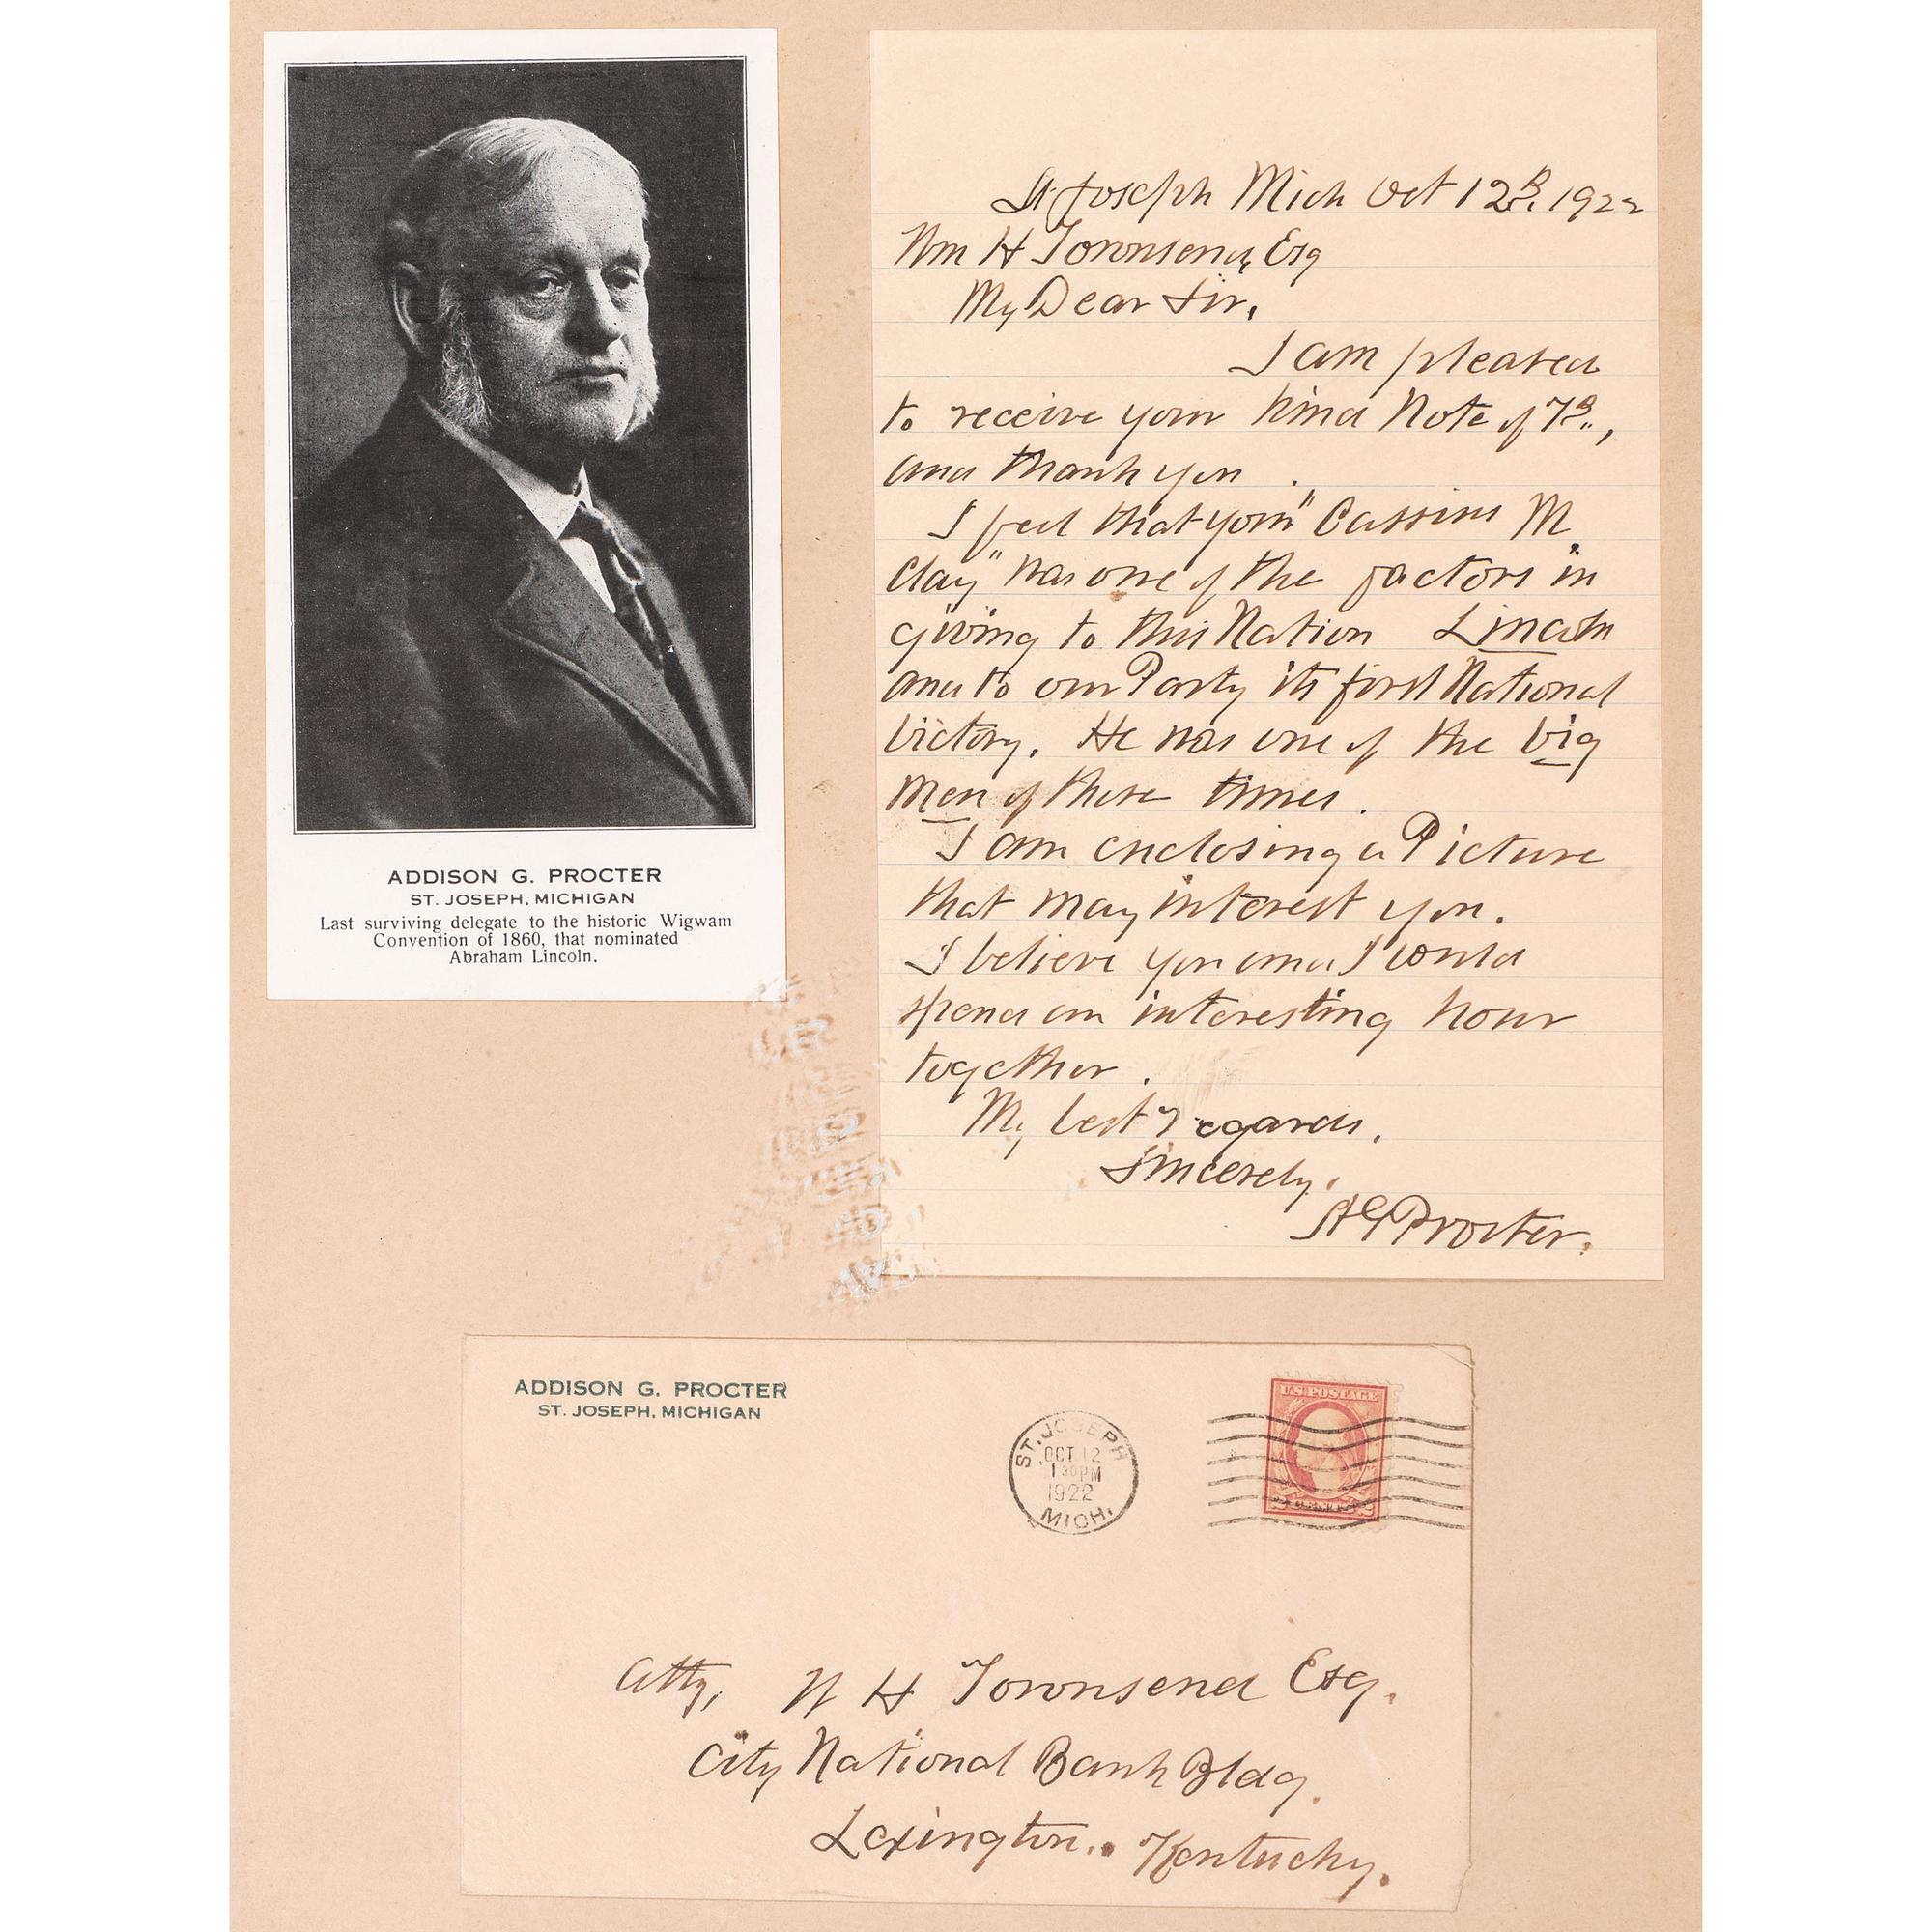 ADDISON G. PROCTER
ST. JOSEPH, MICHIGAN
Last surviving delegate to the historic Wigwam
Convention of 1860, that nominated
Abraham Lincoln.
St Joseph Mich Oct 12th. 1922
Wm H Townsend, Esq
My Dear Sir,
I am pleased
to receive your kind Note of 7th.,
and thank you.
I feel that your "Cassius M.
Clay" was one of the factors in
giving to this Nation Lincoln
and to our Party its first National
Victory. He was one of the big
Men of those times.
I am enclosing a Picture
that may interest you.
I believe you and I could
spend an interesting hour
together.
My best regards,
Sincerely,
A G Procter.
ADDISON G. PROCTER
ST. JOSEPH, MICHIGAN
ST. JOSEPH
OCT 12
1 30 PM
1922
MICH.
U.S. POSTAGE
Atty, W H Townsend Esq.
City National Bank Bldg.
Lexington.. Kentucky.